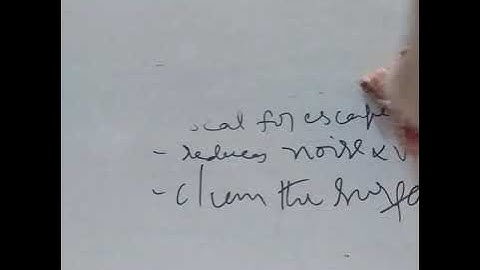 cal for escape
- reduces noise & v
- clean the surfa